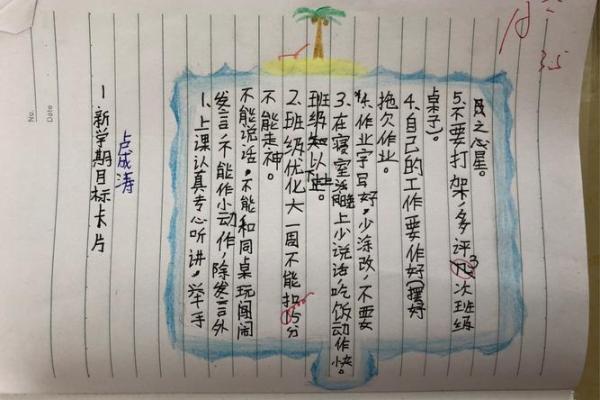 新学期目标卡片
卢成涛
1、上课认真专心听讲，举手
发言，不能作小动作，除发言外
不能说话，不能和同桌玩闹闹
不能走神。
2、班级优化大一周不能扣15分
班级以上。
3、在寝室上少说话吃饭动作快。
作业字写好，少涂改，不要
拖欠作业。
4、自己的工作要作好（摆好
桌子）。
5、不要打架，多评3次班级
之星。
No.
Date
3.5